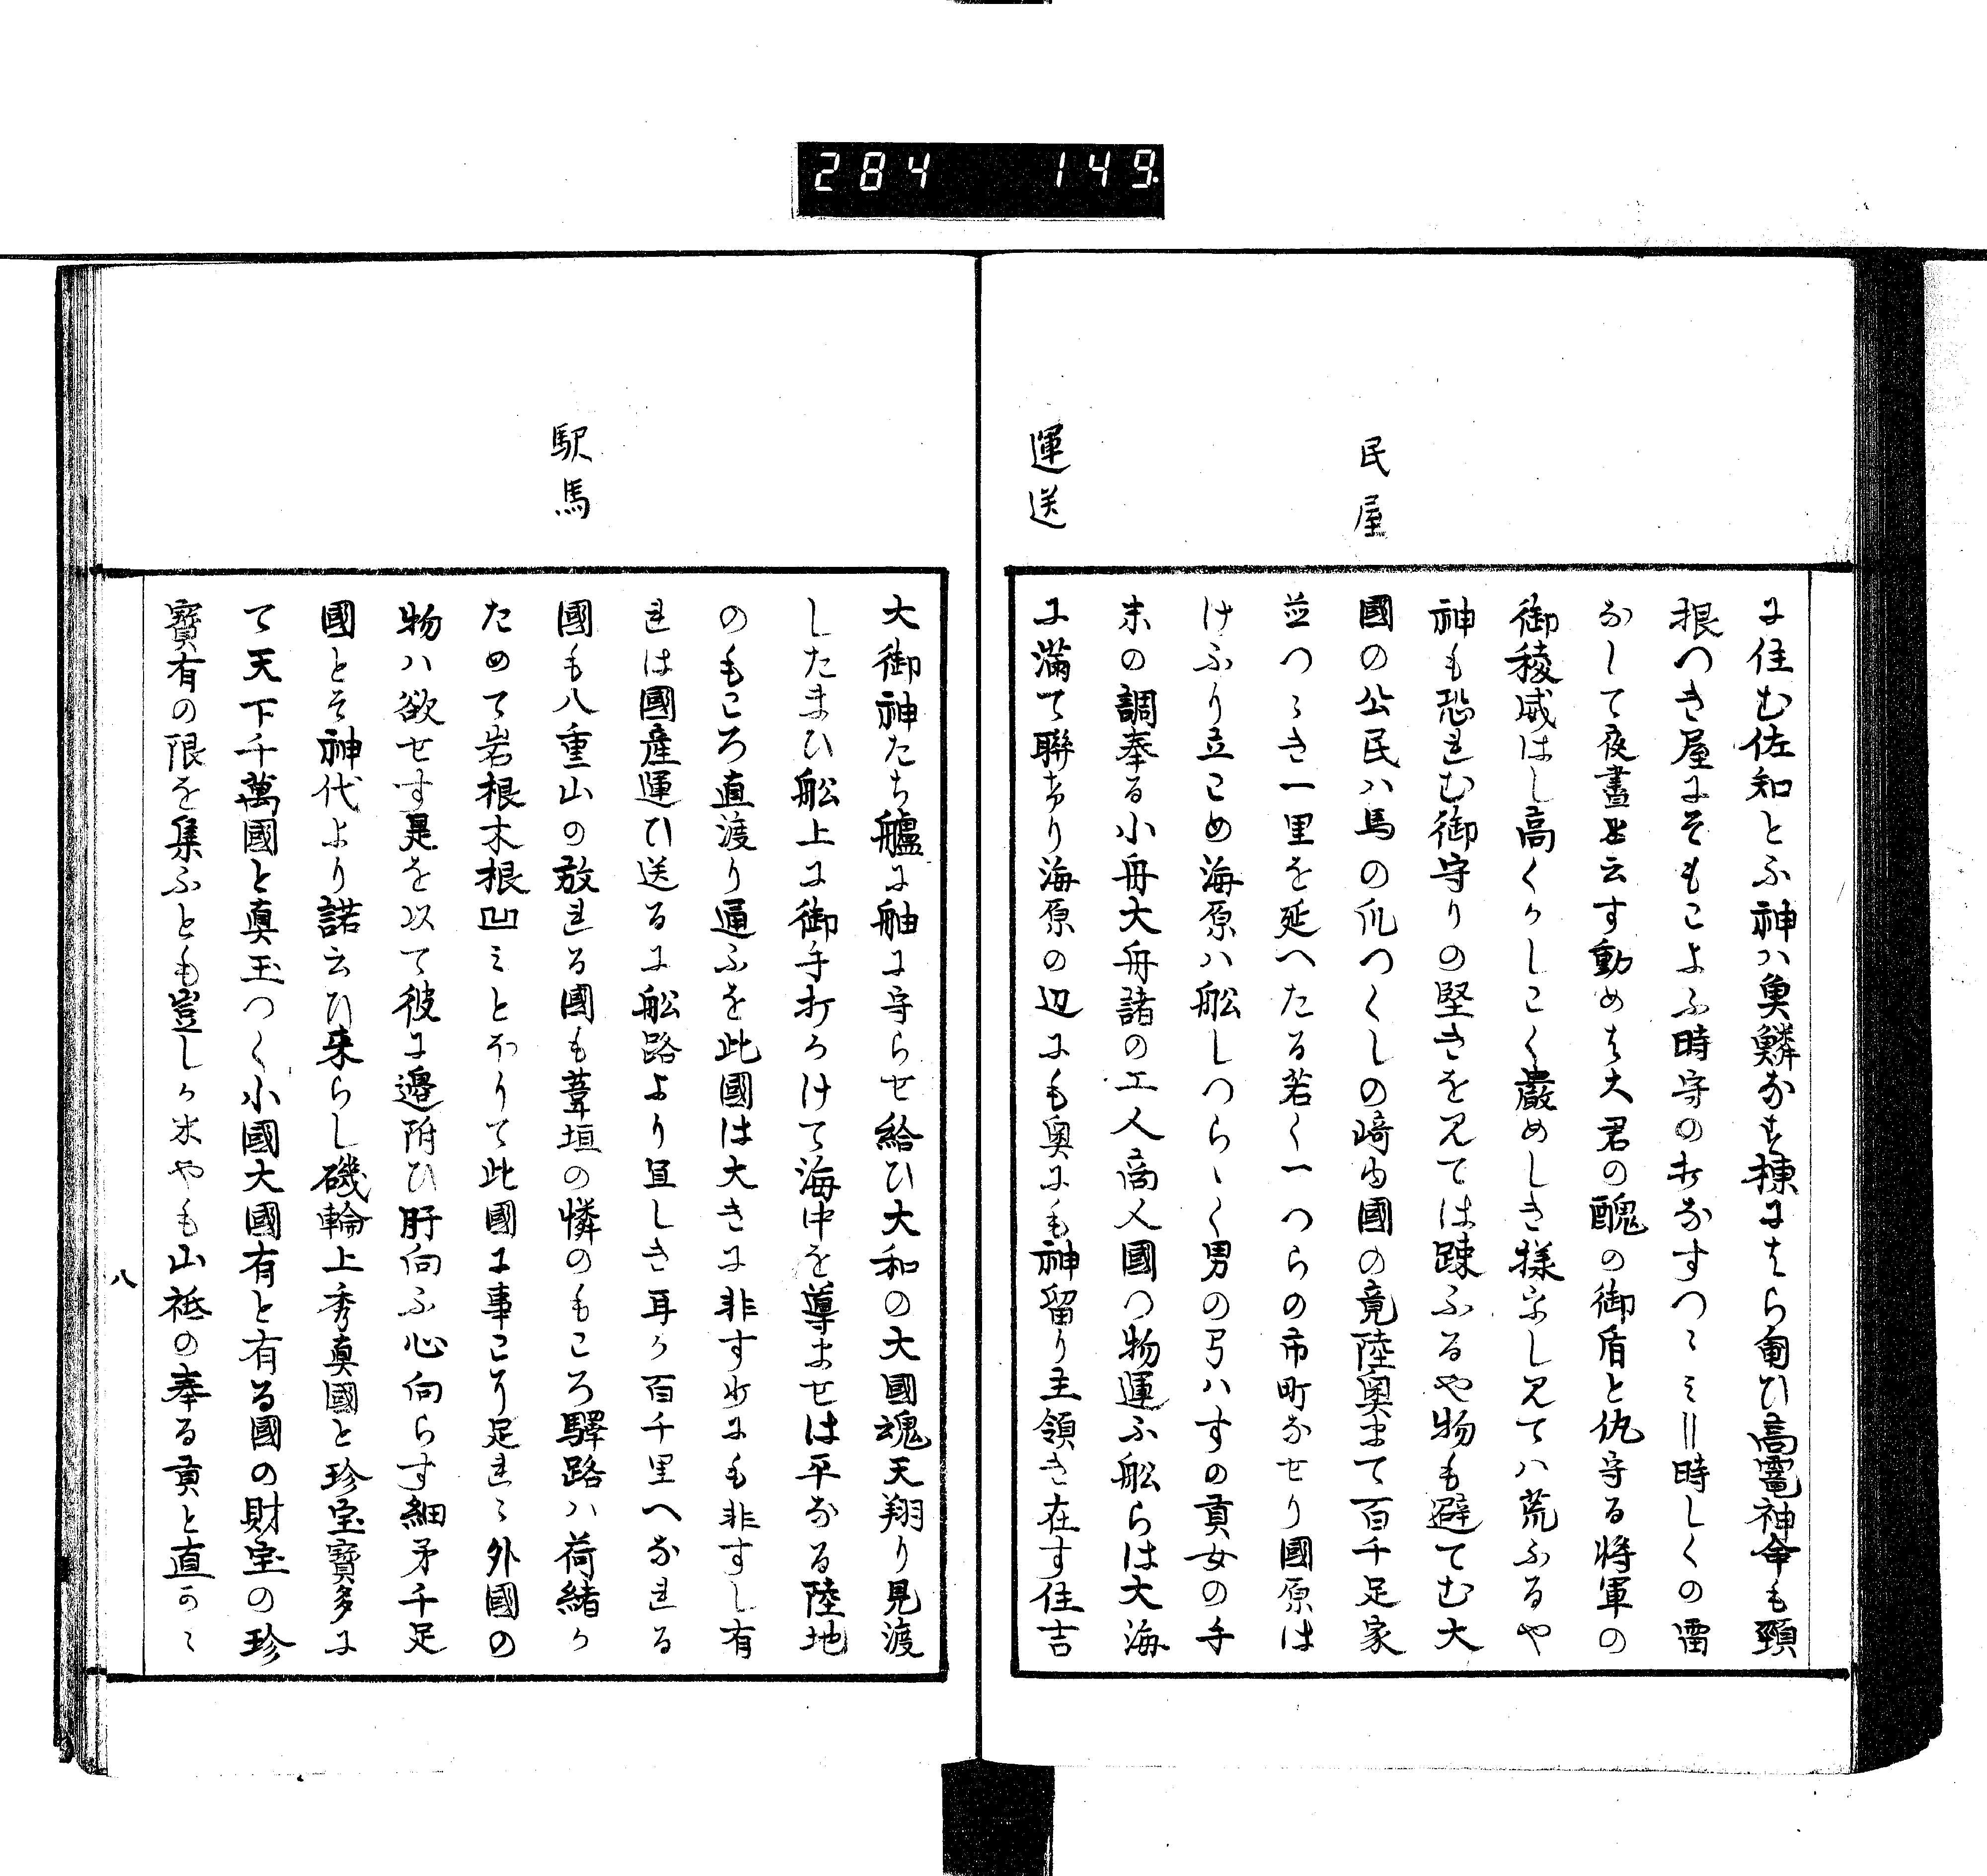 284 149
に住む佐知とふ神ハ魚鱗なす棟にはら匍ひ高靇神命も頸
根つき屋にそもこよふ時守の打なすつゝミ非時しくの雷
なして夜晝と云す動めは大君の醜の御盾と仇守る将軍の
御稜威はし高くかしこく嚴めしき様にし見てハ荒ふるや
神も恐れむ御守りの堅きを見ては踈ふるや物も避てむ大
民屋
國の公民ハ馬の爪つくしの﨑由國の竟陸奥まて百千足家
並つゝき一里を延へたる若く一つらの市町なせり國原は
けふり立こめ海原ハ舩しつらゝく男の弓ハすの貢女の手
末の調奉る小舟大舟諸の工人商人國つ物運ふ舩らは大海
運送
に滿て聯なり海原の辺にも奥にも神留り主領き在す住吉
大御神たち艫に舳に守らせ給ひ大和の大國魂天翔り見渡
したまひ舩上に御手打かけて海中を導ませは平なる陸地
のもころ直渡り通ふを此國は大きに非す少にも非すし有
れは國産運ひ送るに舩路より宜しき耳か百千里へなれる
駅馬
國も八重山の放れる國も葦垣の憐のもころ驛路ハ荷緒か
ためて岩根木根凹ミとほりて此國に事こり足れゝ外國の
物ハ欲せす是を以て彼に邊附ひ肝向ふ心向らす細矛千足
國とそ神代より諾云ひ来らし磯輪上秀真國と珍宝寶多に
て天下千萬國と真玉つく小國大國有と有る國の財宝の珍
寶有の限を集ふとも豈しか米やも山祗の奉る貢と直のゝ
八